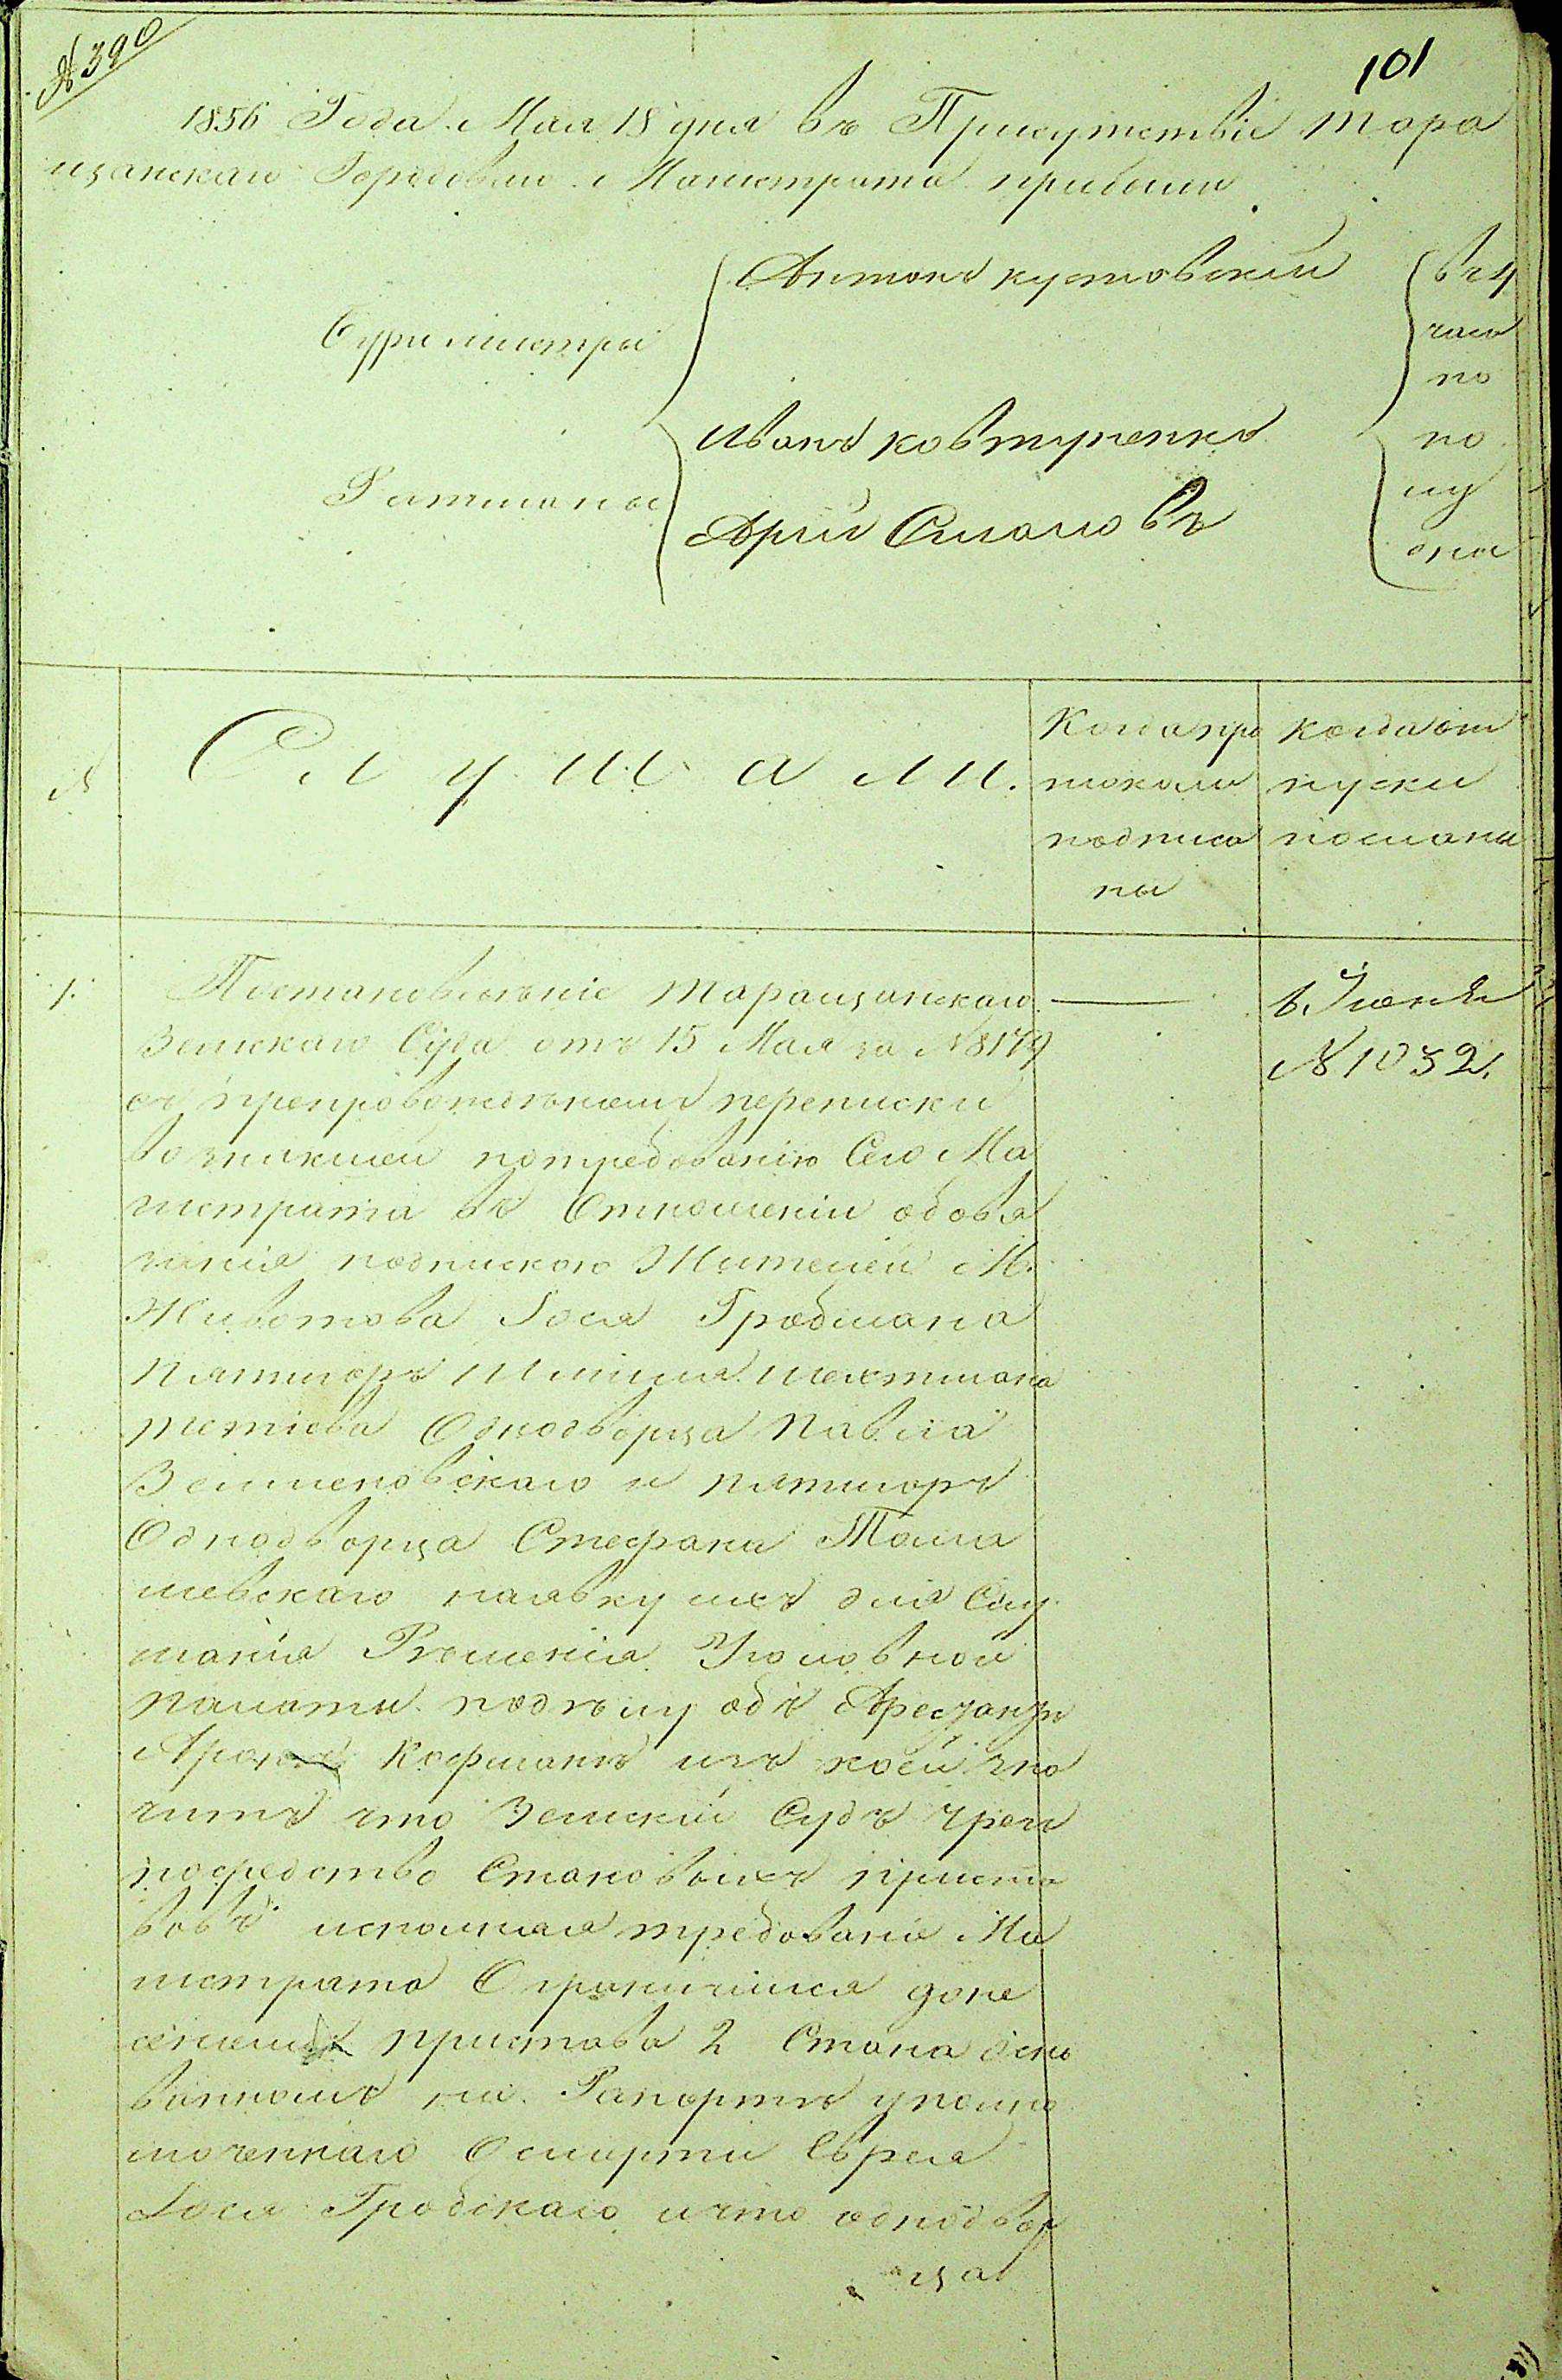 № 390
101
1856 Года Мая 18 дня въ Присутствіе Тара
щанскаго Городоваго Магистрата прибыли
Бургмистры
Антонъ Кустовскій
въ 4
часа
по
Ратманы
Иванъ Ковтуненко
Арій Смоловъ
по
лу
дни
№
Слушали.
Когда про
токолы
подписа
ны
Когда от
пуски
посланы
1.
Постановленіе Таращанскаго
Земскаго Суда отъ 15 Мая за № 8179
съ препровожденіемъ переписки
возникшей потребованію Сего Ма
гистрата въ Отношеніи обовя
занія подпискою Жителей М.
Животова Іося Гродмана
Пятигоръ Шмиля Шехтмана
Тетіева Однодворца Павла
Земленовскаго и Пятигоръ
Однодворца Стефана Тома
шевскаго наявку ихъ для Слу
шанія Решенія Уголовной
Палаты подѣлу объ Арестантѣ
Арону Кофманѣ изъ коей зна
читъ что Земскій Судъ чрезъ
посредство Становыхъ приста
вовъ исполняя требованіе Ма
гистрата Ограничился доне
сеніемъ пристава 2 Стана осно
ваннымъ на Рапортѣ уполно
моченнаго Осмерти Еврея
Іося Гродскаго и что однодвор
ца
6 Іюня
№ 1032.